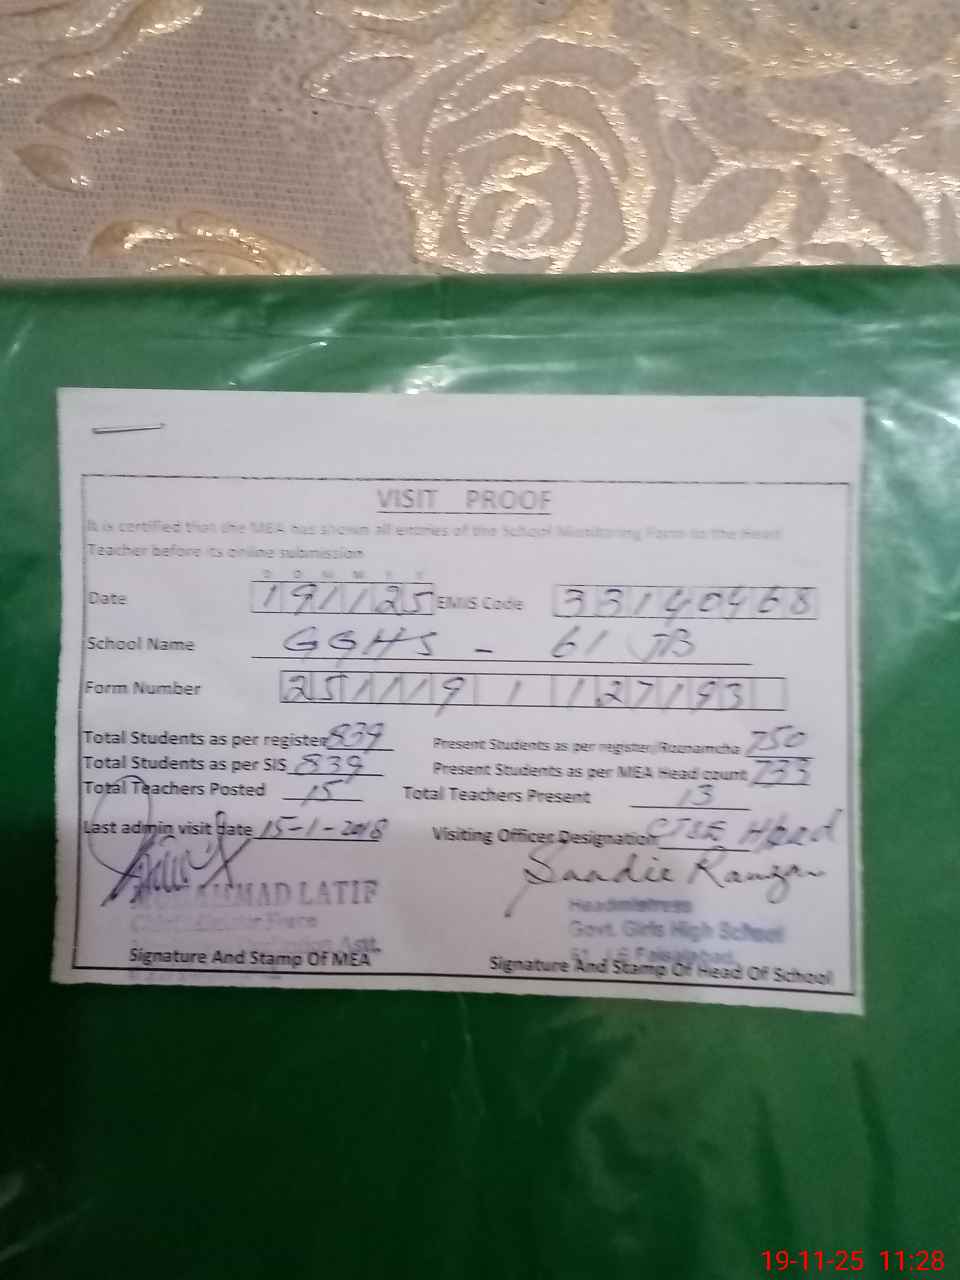 VISIT PROOF
It is certified that the MEA has shown all entries of the School Monitoring Form to the Head
Teacher before its online submission
D D M M Y Y
Date 191125 EMIS Code 33140468
School Name GGHS - 61 JB
Form Number 251119 1 127193
Total Students as per register 839 Present Students as per register/Roznamcha 750
Total Students as per SIS 839 Present Students as per MEA Head count 733
Total Teachers Posted 15 Total Teachers Present 13
Last admin visit date 15-1-2018 Visiting Officer Designation Head
MUHAMMAD LATIF
Headmistress
Govt. Girls High School
Faisalabad
Signature And Stamp Of MEA Signature And Stamp Of Head Of School
19-11-25 11:28